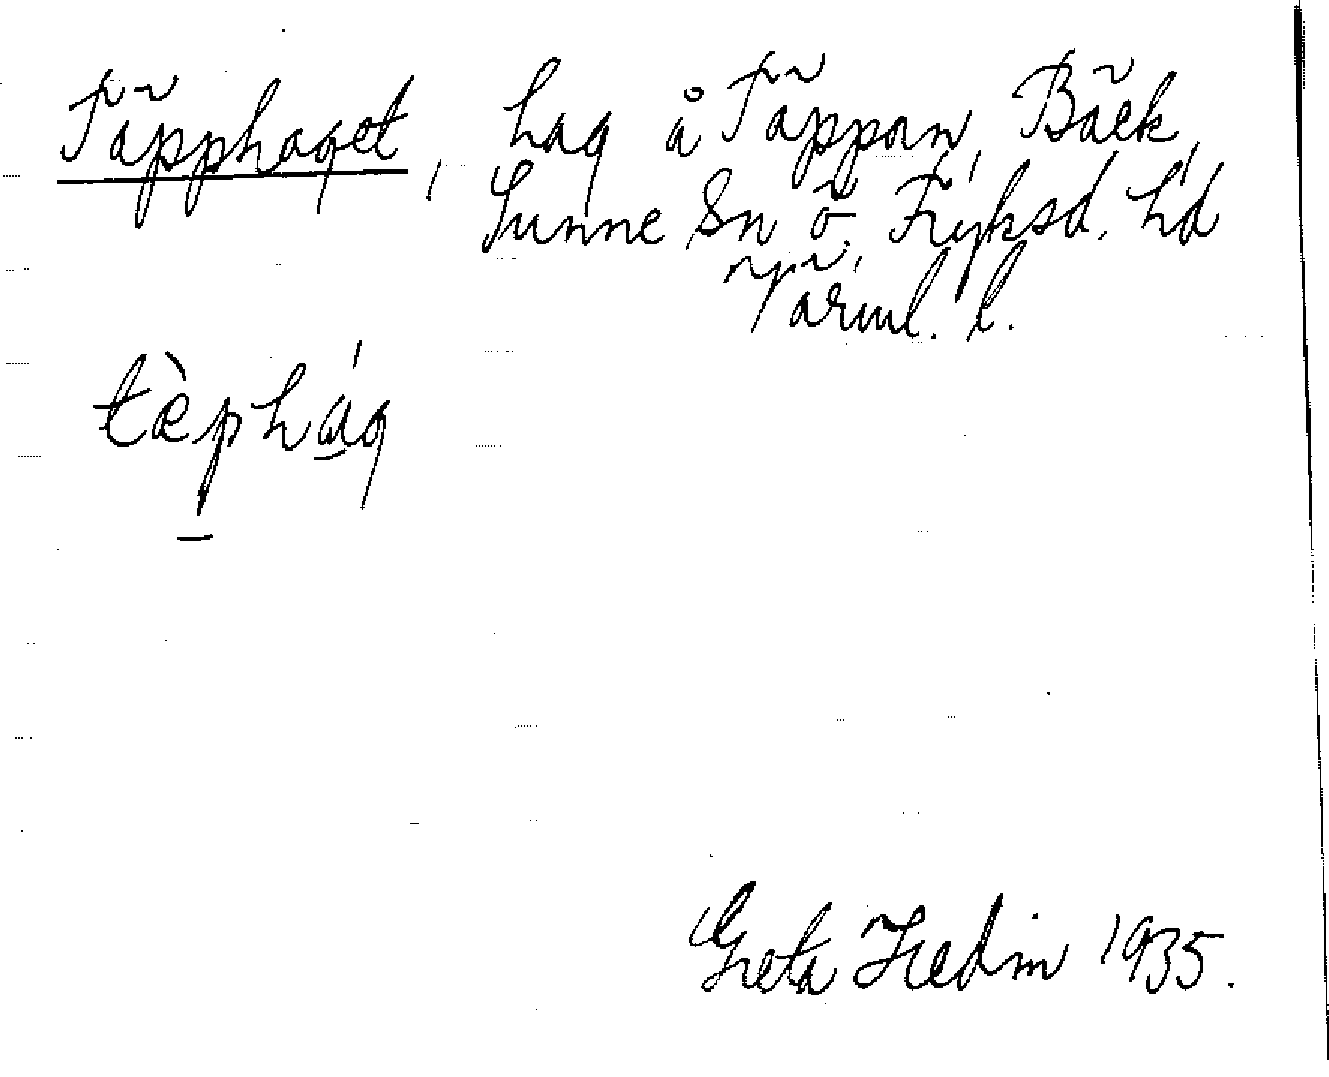 Täpphaget, hag å Täppan, Bäck,
Sunne Sn ö. Fryksd. hd
Värml. l.
tæ̀phá̲g
Greta Hedin 1935.